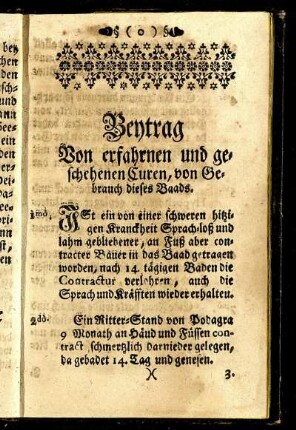 § ( o ) §
Beytrag
Von erfahrnen und ge-
schehenen Curen, von Ge-
brauch dieses Baads.
1mò. ISt ein von einer schweren hitzi-
gen Kranckheit Sprach-loß und
lahm gebliebener, an Fuß aber con-
tracter Bauer in das Baad getragen
worden, nach 14. tägigen Baden die
Contractur verlohren, auch die
Sprach und Kräfften wieder erhalten.
2dò. Ein Ritter-Stand von Podagra
9 Monath an Händ und Füssen con-
tract schmertzlich darnieder gelegen,
da gebadet 14. Tag und genesen.
)( 3.